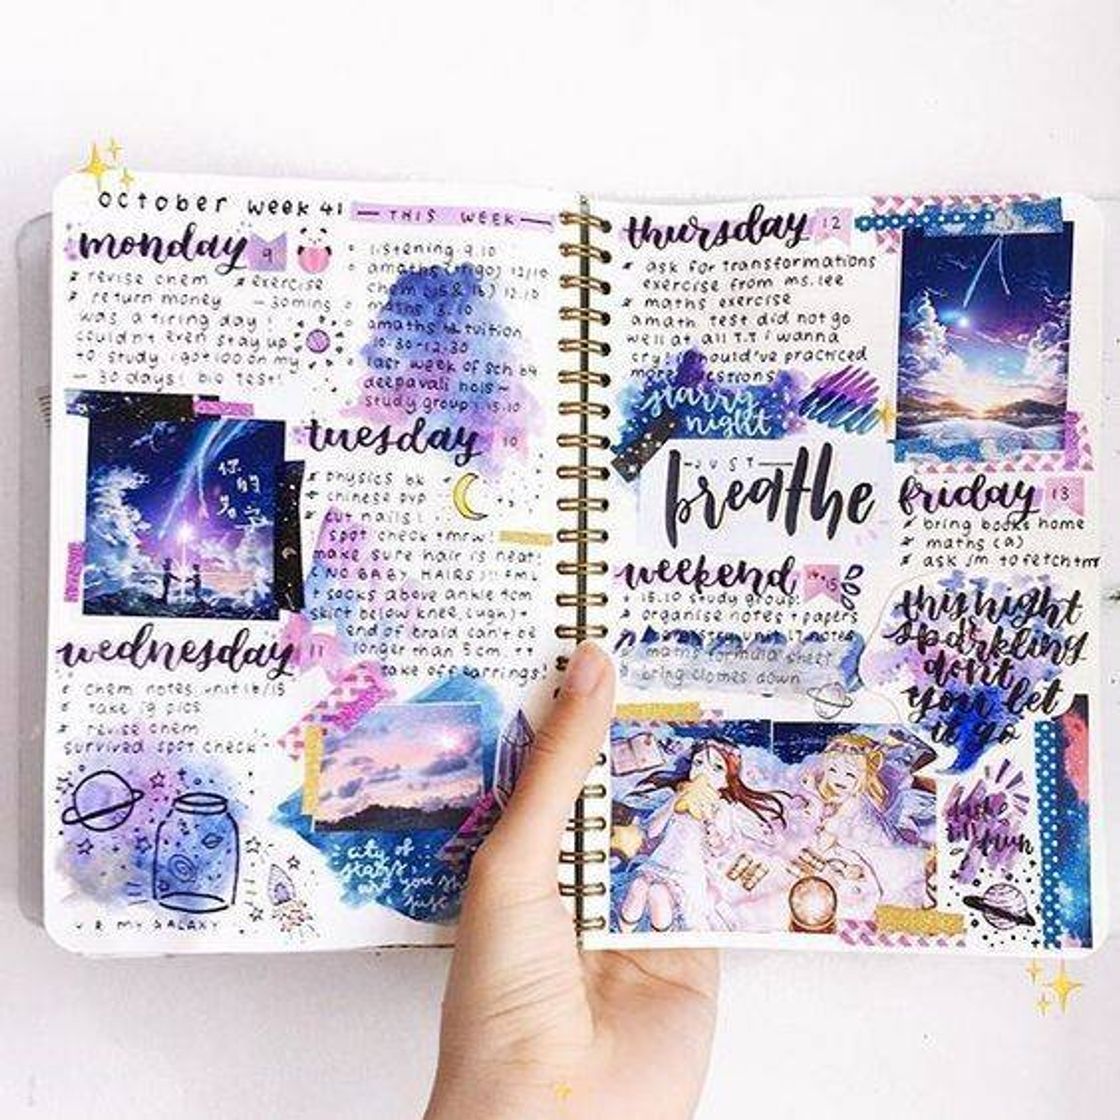 october week 41
THIS WEEK
monday 9
revise chem
exercise
return money
- 30 mins
was a tiring day!
couldn't even stay up
to study. i got 100 on my
- 30 days! bio test!
listening 9.10
amaths (trigo) 12/10
chem (15 & 16) 12.10
maths 13.10
amaths tuition
10:30-12:30
last week of sch b4
deepavali hols ~
study group: 15.10
tuesday 10
physics bk
chinese pvp
cut nails!
spot check tmrw!
make sure hair is neat!
(NO BABY HAIRS)!! FML
+ socks above ankle 4cm
skirt below knee (ugh) +
end of braid can't be
longer than 5cm. ++
take off earrings!
你的名字
wednesday 11
chem notes unit 16/15
take ig pics
revise chem
survived spot check
city of
stars,
are you
just
U R MY GALAXY
thursday 12
ask for transformations
exercise from ms. lee
maths exercise
amath test did not go
well at all T.T i wanna
cry! should've practiced
more questions
starry
night
JUST
breathe
friday 13
bring books home
maths (a)
ask jm to fetch tmr
weekend 14-15
15.10 study group:
organise notes + papers
chemistry unit 17 notes
maths formula sheet
bring clothes down
this night
sparkling
don't
you let
it go